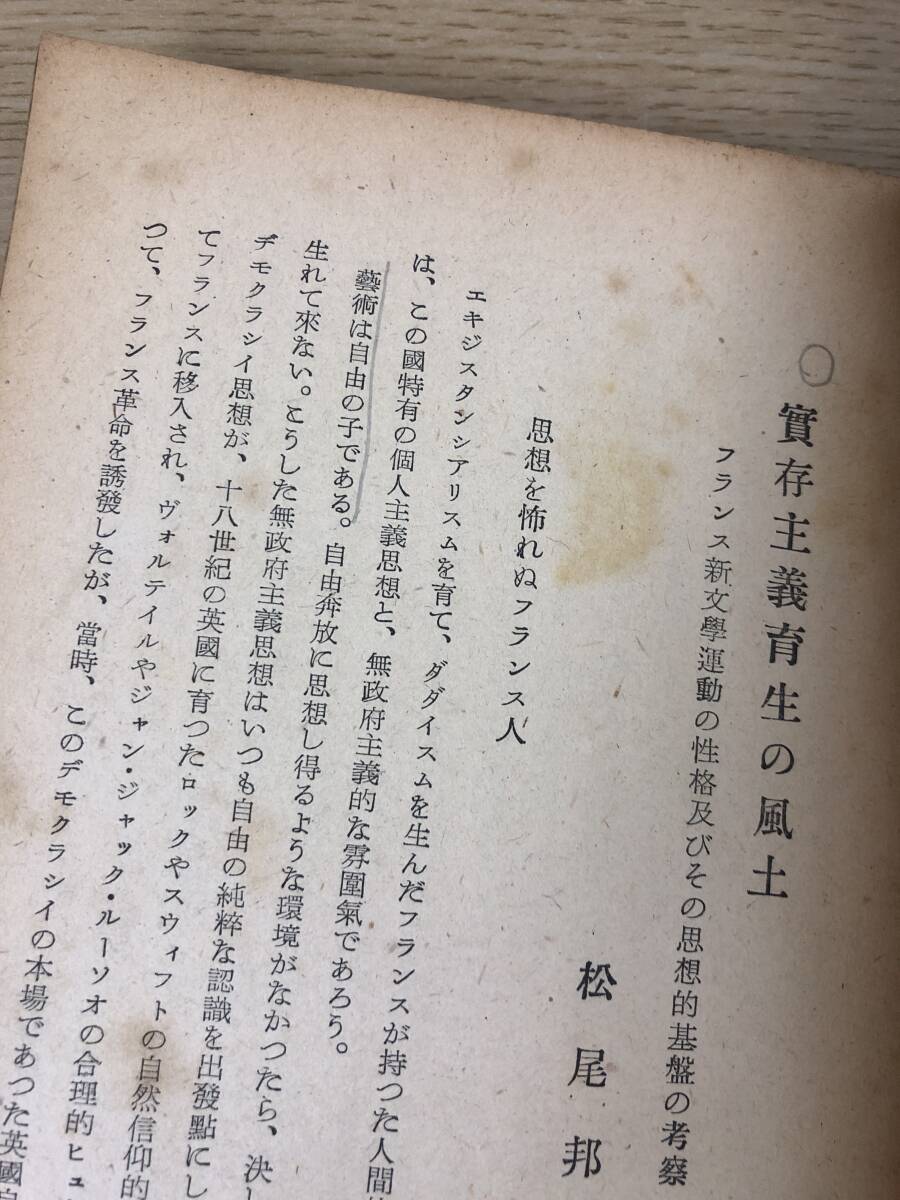 實存主義育生の風土
フランス新文學運動の性格及びその思想的基盤の考察
松尾邦
思想を怖れぬフランス人
エキジスタンシアリスムを育て、ダダイスムを生んだフランスが持つた人間
は、この國特有の個人主義思想と、無政府主義的な雰圍氣であろう。
藝術は自由の子である。自由奔放に思想し得るような環境がなかつたら、決し
生れて來ない。こうした無政府主義思想はいつも自由の純粹な認識を出發點にし
デモクラシイ思想が、十八世紀の英國に育つたロックやスウィフトの自然信仰的
てフランスに移入され、ヴォルテイルやジャン・ジャック・ルーソオの合理的ヒュ
つて、フランス革命を誘發したが、當時、このデモクラシイの本場であつた英國